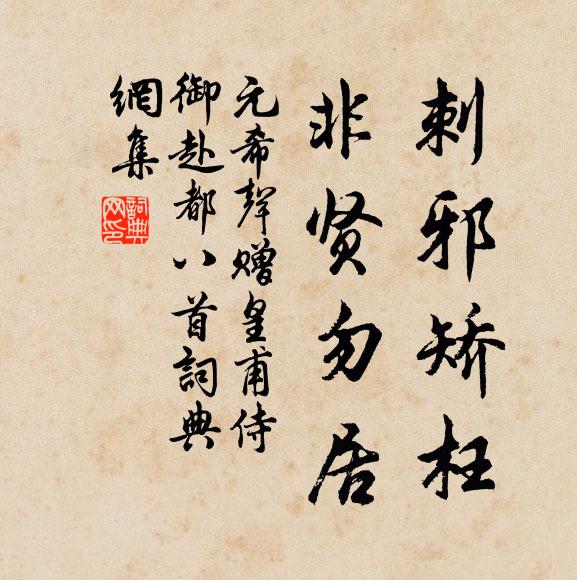 刺邪矫枉
非贤勿居
元希聲赠皇甫侍
御赴都八首詞典
網集
詞典
网印